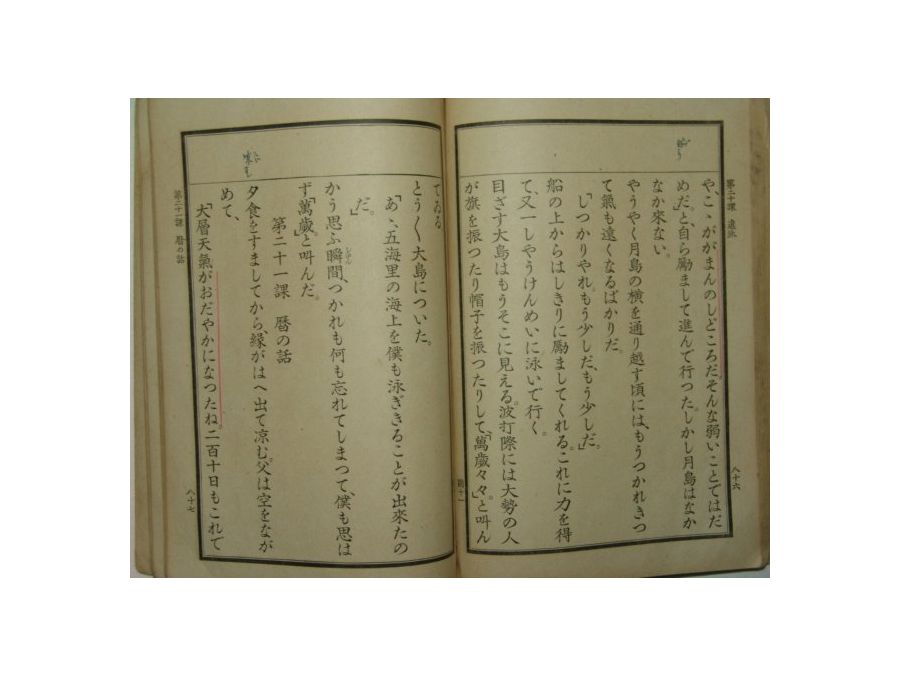 第二十課 遠泳
八十六
や、こゝががまんのしどころだ。そんな弱いことではだ
めだ。」と、自ら勵まして進んで行つた。しかし月島はなか
なか來ない。
やうやく月島の横を通り越す頃には、もうつかれきつ
て氣も遠くなるばかりだ。
「しつかりやれ。もう少しだ、もう少しだ。」
船の上からはしきりに勵ましてくれる。これに力を得
て、又一しやうけんめいに泳いで行く。
目ざす大島はもうそこに見える。波打際には大勢の人
が旗を振つたり帽子を振つたりして、「萬歳々々。」と叫ん
でゐる
とう〳〵大島についた。
「あゝ、五海里の海上を僕も泳ぎきることが出來たの
だ。」
かう思ふ瞬間、つかれも何も忘れてしまつて、僕も思は
しゆん
ず「萬歳。」と叫んだ。
第二十一課 暦の話
夕食をすましてから、縁がはへ出て凉む。父は空をなが
めて、
「大層天氣がおだやかになつたね。二百十日もこれで
第二十一課 暦の話
八十七